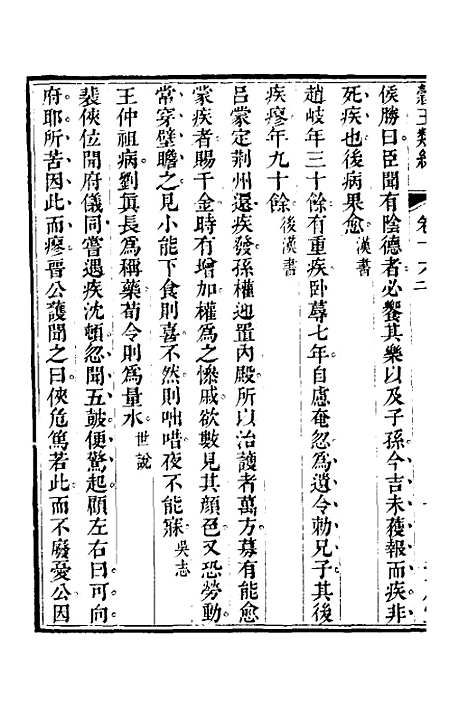 侯勝曰臣聞有陰德者必饗其樂以及子孫今吉未獲報而疾非
死疾也後病果愈漢書
趙岐年三十餘有重疾卧蓐七年自慮奄忽爲遺令勅兄子其後
疾瘳年九十餘後漢書
呂蒙定荆州還疾發孫權迎置內殿所以治護者萬方募有能愈
蒙疾者賜千金時有增加權爲之慘戚欲數見其顔色又恐勞動
常穿壁瞻之見小能下食則喜不然則咄唶夜不能寐吳志
王仲祖病劉眞長爲稱藥荀令則爲量水世說
裴俠位開府儀同嘗遇疾沈頓忽聞五鼓便驚起顧左右曰可向
府耶所苦因此而瘳晉公護聞之曰俠危篤若此而不廢憂公因